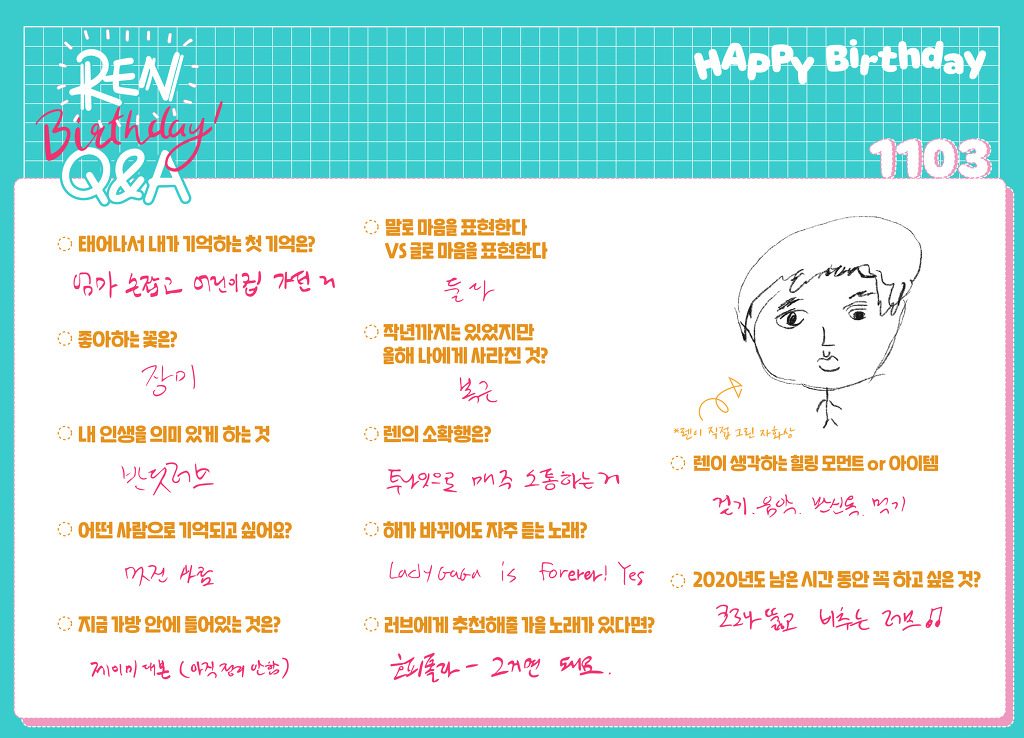 REN
Birthday!
Q&A
HAPPY Birthday
1103
태어나서 내가 기억하는 첫 기억은?
엄마 손잡고 어린이집 가던 거
좋아하는 꽃은?
장미
내 인생을 의미 있게 하는 것
반딧러브
어떤 사람으로 기억되고 싶어요?
멋진 사람
지금 가방 안에 들어있는 것은?
제이미 대본 (아직 정리 안함)
말로 마음을 표현한다
VS 글로 마음을 표현한다
둘 다
작년까지는 있었지만
올해 나에게 사라진 것?
복근
렌의 소확행은?
투나잇으로 매주 소통하는 거
해가 바뀌어도 자주 듣는 노래?
Lady GaGa is Forever! Yes
러브에게 추천해줄 가을 노래가 있다면?
히피폴라 - 그거면 돼요.
*렌이 직접 그린 자화상
렌이 생각하는 힐링 모먼트 or 아이템
걷기. 음악. 반신욕. 먹기
2020년도 남은 시간 동안 꼭 하고 싶은 것?
코로나 뚫고 비추는 러브